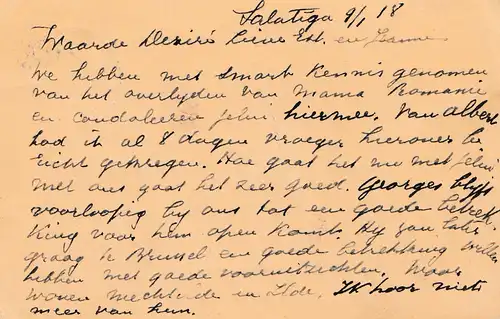 Salatiga 9/1 18
Waarde Deziré lieve Est. en Jeanne
We hebben met smart kennis genomen
van het overlyden van mama Romanie
en condoleeren jelui hiermee. Van Albert
had ik al 8 dagen vroeger hierover be
richt gekregen. Hoe gaat het nu met jelui
met ons gaat het zeer goed. Georges blyft
voorloopig by ons tot een goede betrek
king voor hem open komt. Hy zou later
graag te Brussel een goede betrekking willen
hebben met goede vooruitzichten. Waar
wonen Mechtilde en Ilde. Ik hoor niets
meer van hun.